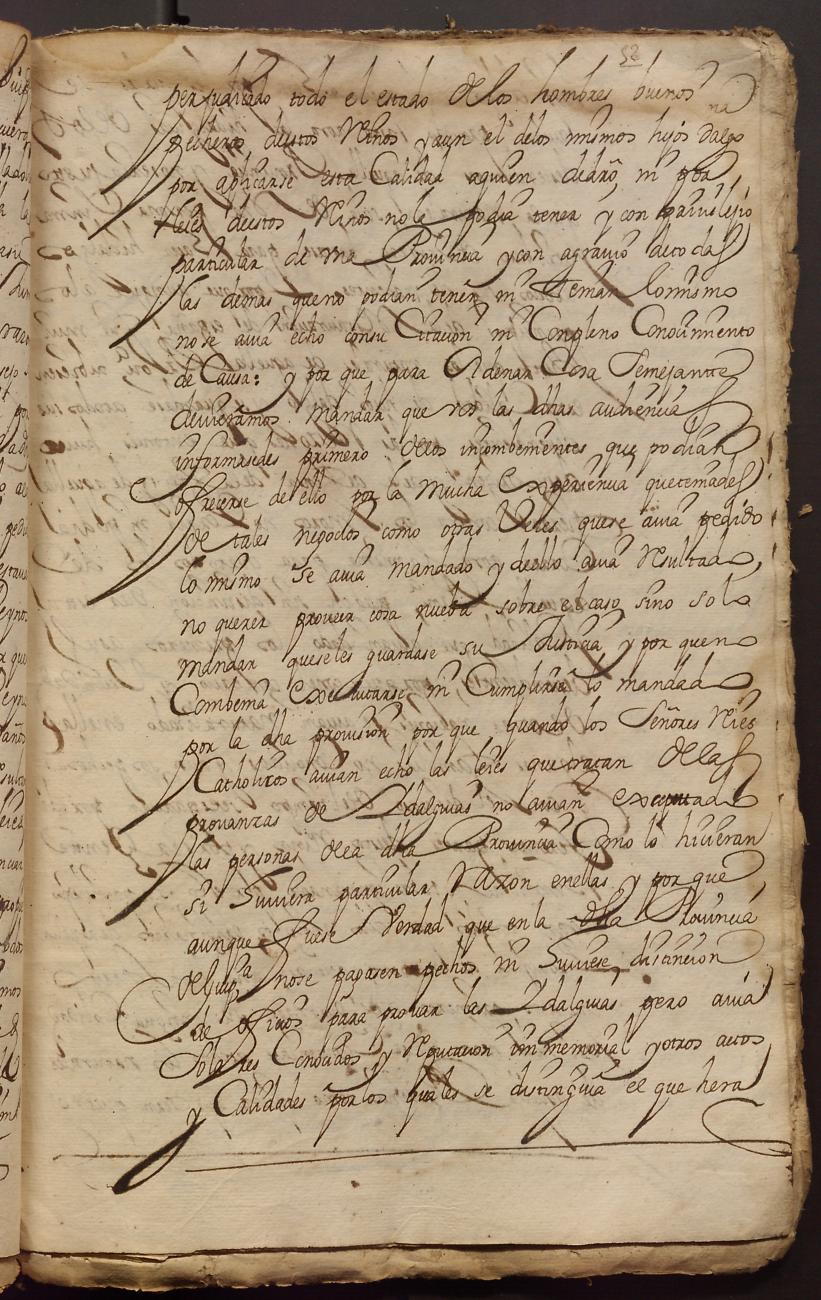 52
perjudicado todo el estado de los hombres buenos
pecheros destos Reinos y aun el delos mismos hijos dalgo
por aplicarse esta Calidad a quien dedro ni por
leies destos Reinos no le podia tener y con previlejio
particular de una Provincia y con agravio detodas
las demas que no podian tener ni tenian lo mismo
no se avia echo con su Citacion ni Con pleno Conocimiento
de Causa: y por que para Ordenar Cosa Semejante
devieramos mandar que vos las dhas audiencias
informasedes primero de los incombenientes que podian
ofrecerse de ello por la mucha Experiencia que teniades
de tales negocios como otras Veces que se avia pedido
lo mismo se avia mandado y de ello avia Resultado
no querer proveer cosa nueba sobre el caso sino solo
mandar que se les guardase su Justicia y por que no
Combenia Executarse ni Cumplirse lo mandado
por la dha provision por que quando los Señores Reies
Catholicos avian echo las leies que tratan de las
provanzas de Ydalguias no avian exceptado
las personas de la dha Provincia Como lo hicieran
si Huviera particular Razon en ellas y por que
aunque fuese Verdad que en la dha Provincia
de Guipca no se pagasen pechos ni Huviese distincion
de oficios para provar las Ydalguias pero avia
Solares Conocidos y Reputacion inmemorial y otros actos
y Calidades por los quales se distinguia el que hera